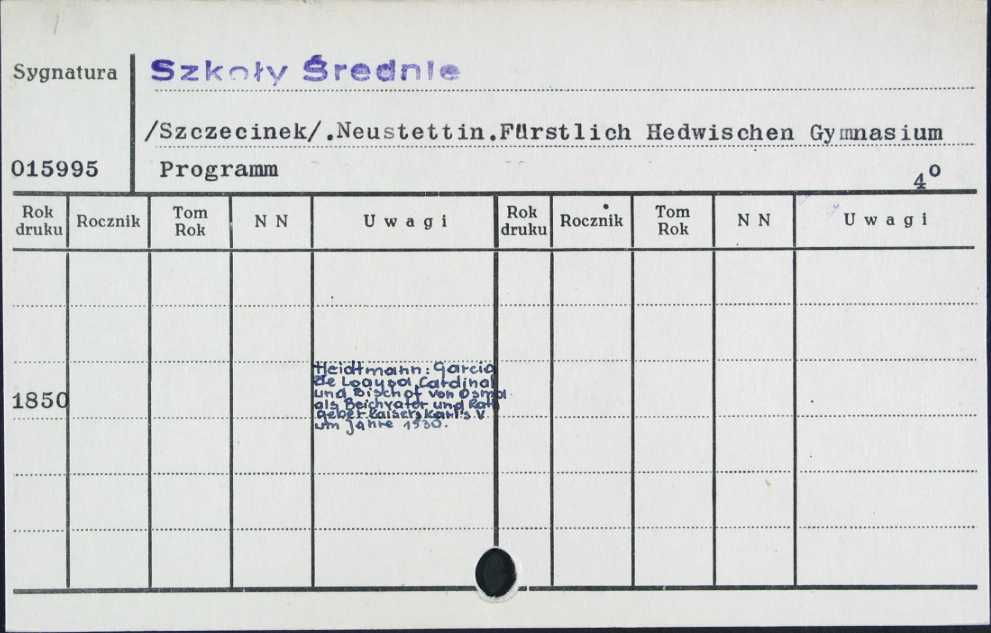 Sygnatura
Szkoły Średnie
/Szczecinek/.Neustettin.Fürstlich Hedwischen Gymnasium
015995
Programm
4º
Rok druku Rocznik Tom Rok N N Uwagi Rok druku Rocznik Tom Rok N N Uwagi
1850
Heidtmann: Garcia
de Loaysa, Cardinal
und Bischof von Osma
als Beichvater und Rat
geber Kaisers Karl's V
um Jahre 1530.